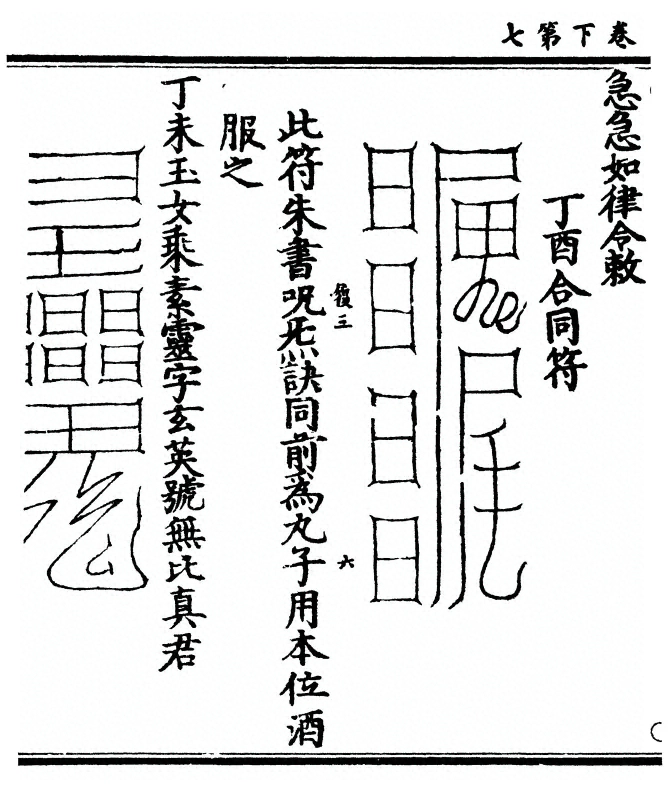 卷下第七
急急如律令敕
丁酉合同符
復三 六
此符朱書呪炁訣同前為丸子用本位酒
服之
丁未玉女乘素靈字玄英號無比真君